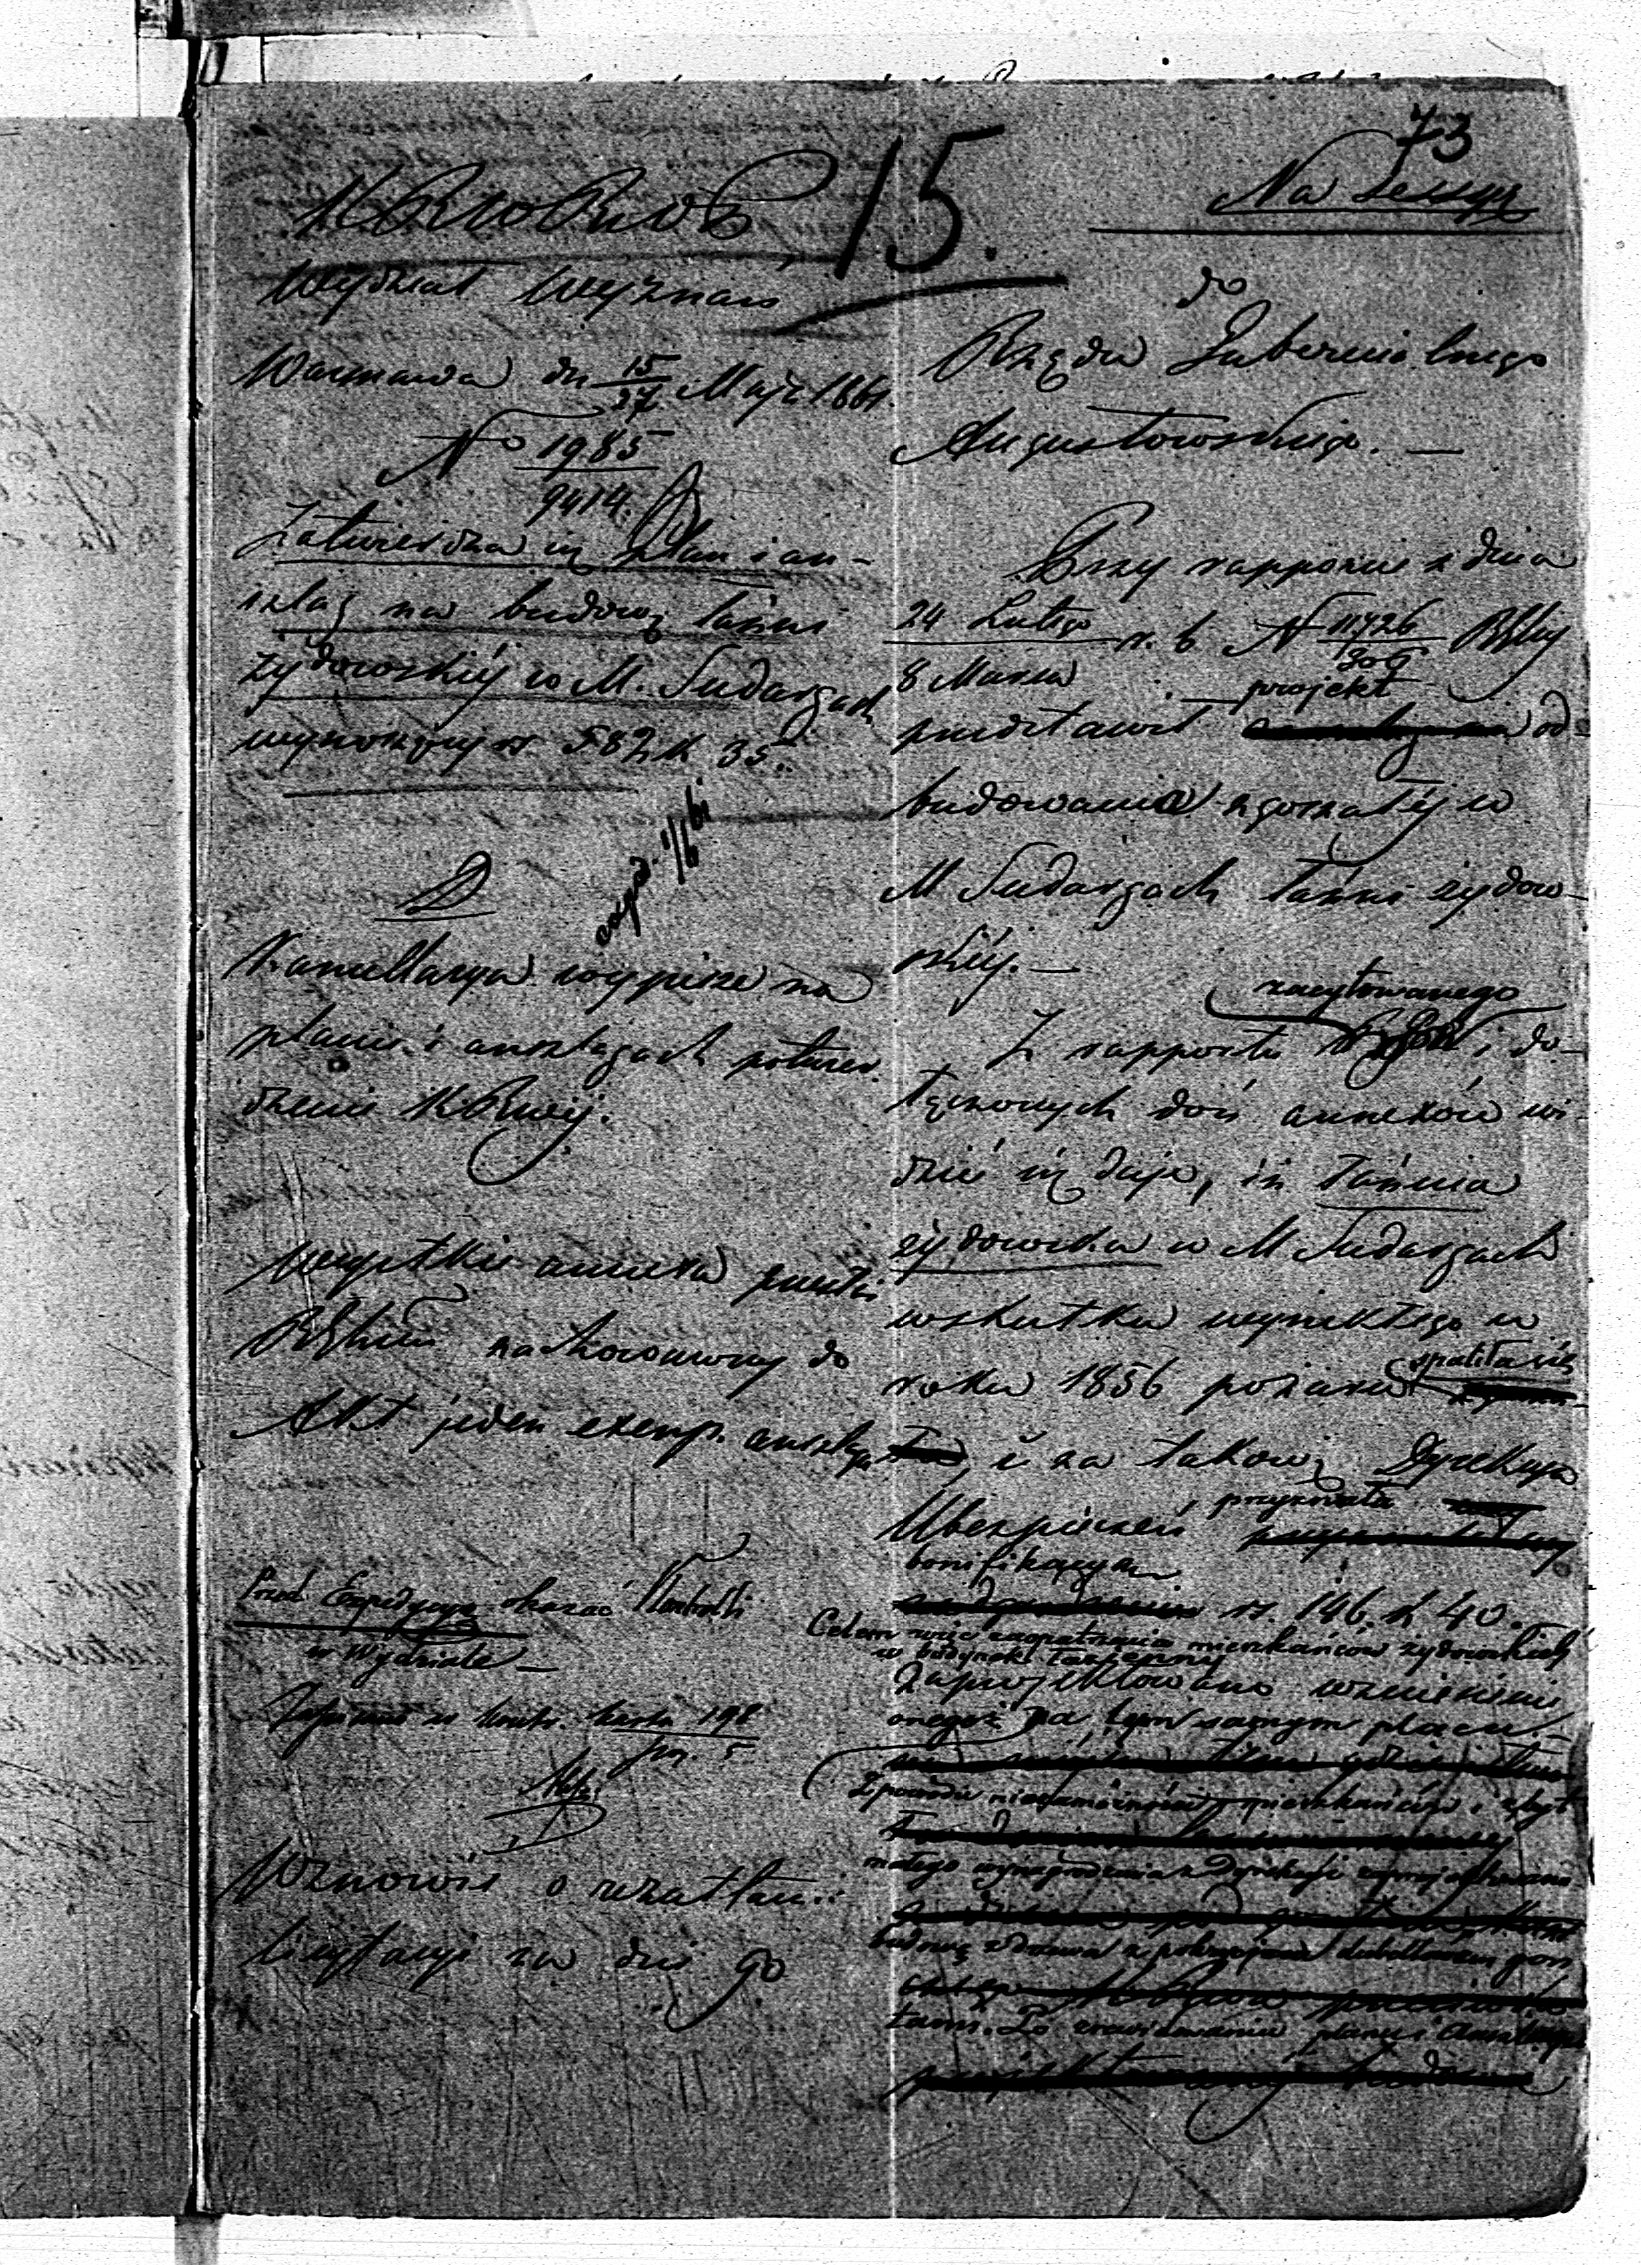 73
15.
Na Sessyę
Wydział Wyznań
Warszawa dn 15/27 Maja 1861.
N 1985/9414
Zatwierdza się plan i an-
szlag na budowę łaźni
żydowskiéj w M. Sudargach
wynoszący rs 582 k 35.
Kancellarya wypisze na
planie i anszlagach potwier-
dzenie KRwéj.
Wszystkie annexa
zachowawszy do
Akt jeden exemp. anszlagu
Przed Expedycyą okazać Kontroli
w Wydziale
Zapisano w kontr. karta 198
poz. 5
Wznowić o rezultacie
licytacyi za dni 90
do
Rządu Gubernialnego
Augustowskiego. —
Przy rapporcie z dnia
24 Lutego / 8 Marca r. b. N 11726/309
przedstawił projekt od-
budowania zgorzałéj w
M Sudargach łaźni żydow-
skiéj. —
Z rapportu zacytowanego i do-
łączonych doń annexów wi-
dzieć się daje, iż łaźnia
żydowska w M Sudargach
wskutku wynikłego w
roku 1856 pożaru spaliła się
i za takową Dyrekcya
Ubezpieczeń przyznała
bonifikacyą
rs. 146. k 40. —
Celem więc zaopatrzenia mieszkańców żydowskich
w budynek łazienny
zaprojektowano wzniesienie
onegoż na tym samym placu —
Z powodu niezamożności mieszkańców i zbyt
małego wynagrodzenia z Dyrekcyi
budowę z drzewa z pokryciem gon-
tami. Po zrewidowaniu planu i anszlagu